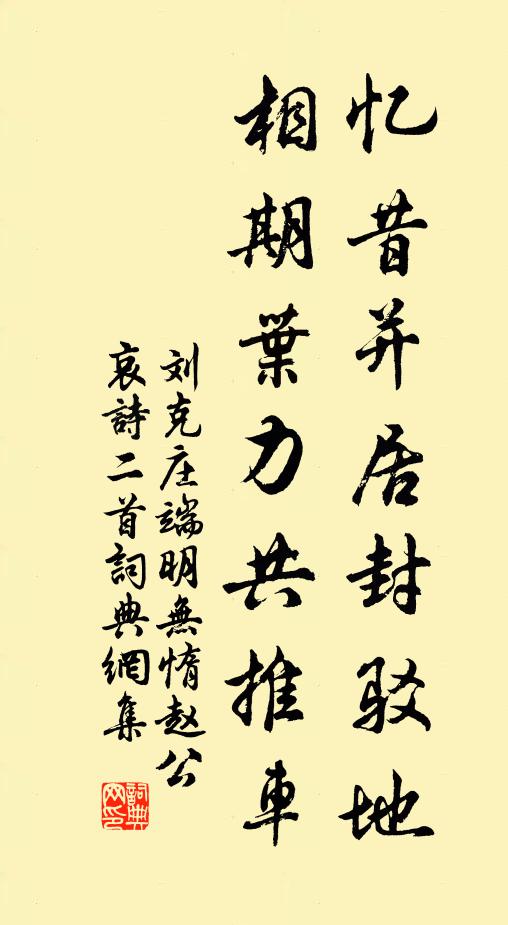 忆昔并居封驳地
相期葉力共推車
刘克庄端明無惰赵公
哀詩二首詞典網集
詞典
网印